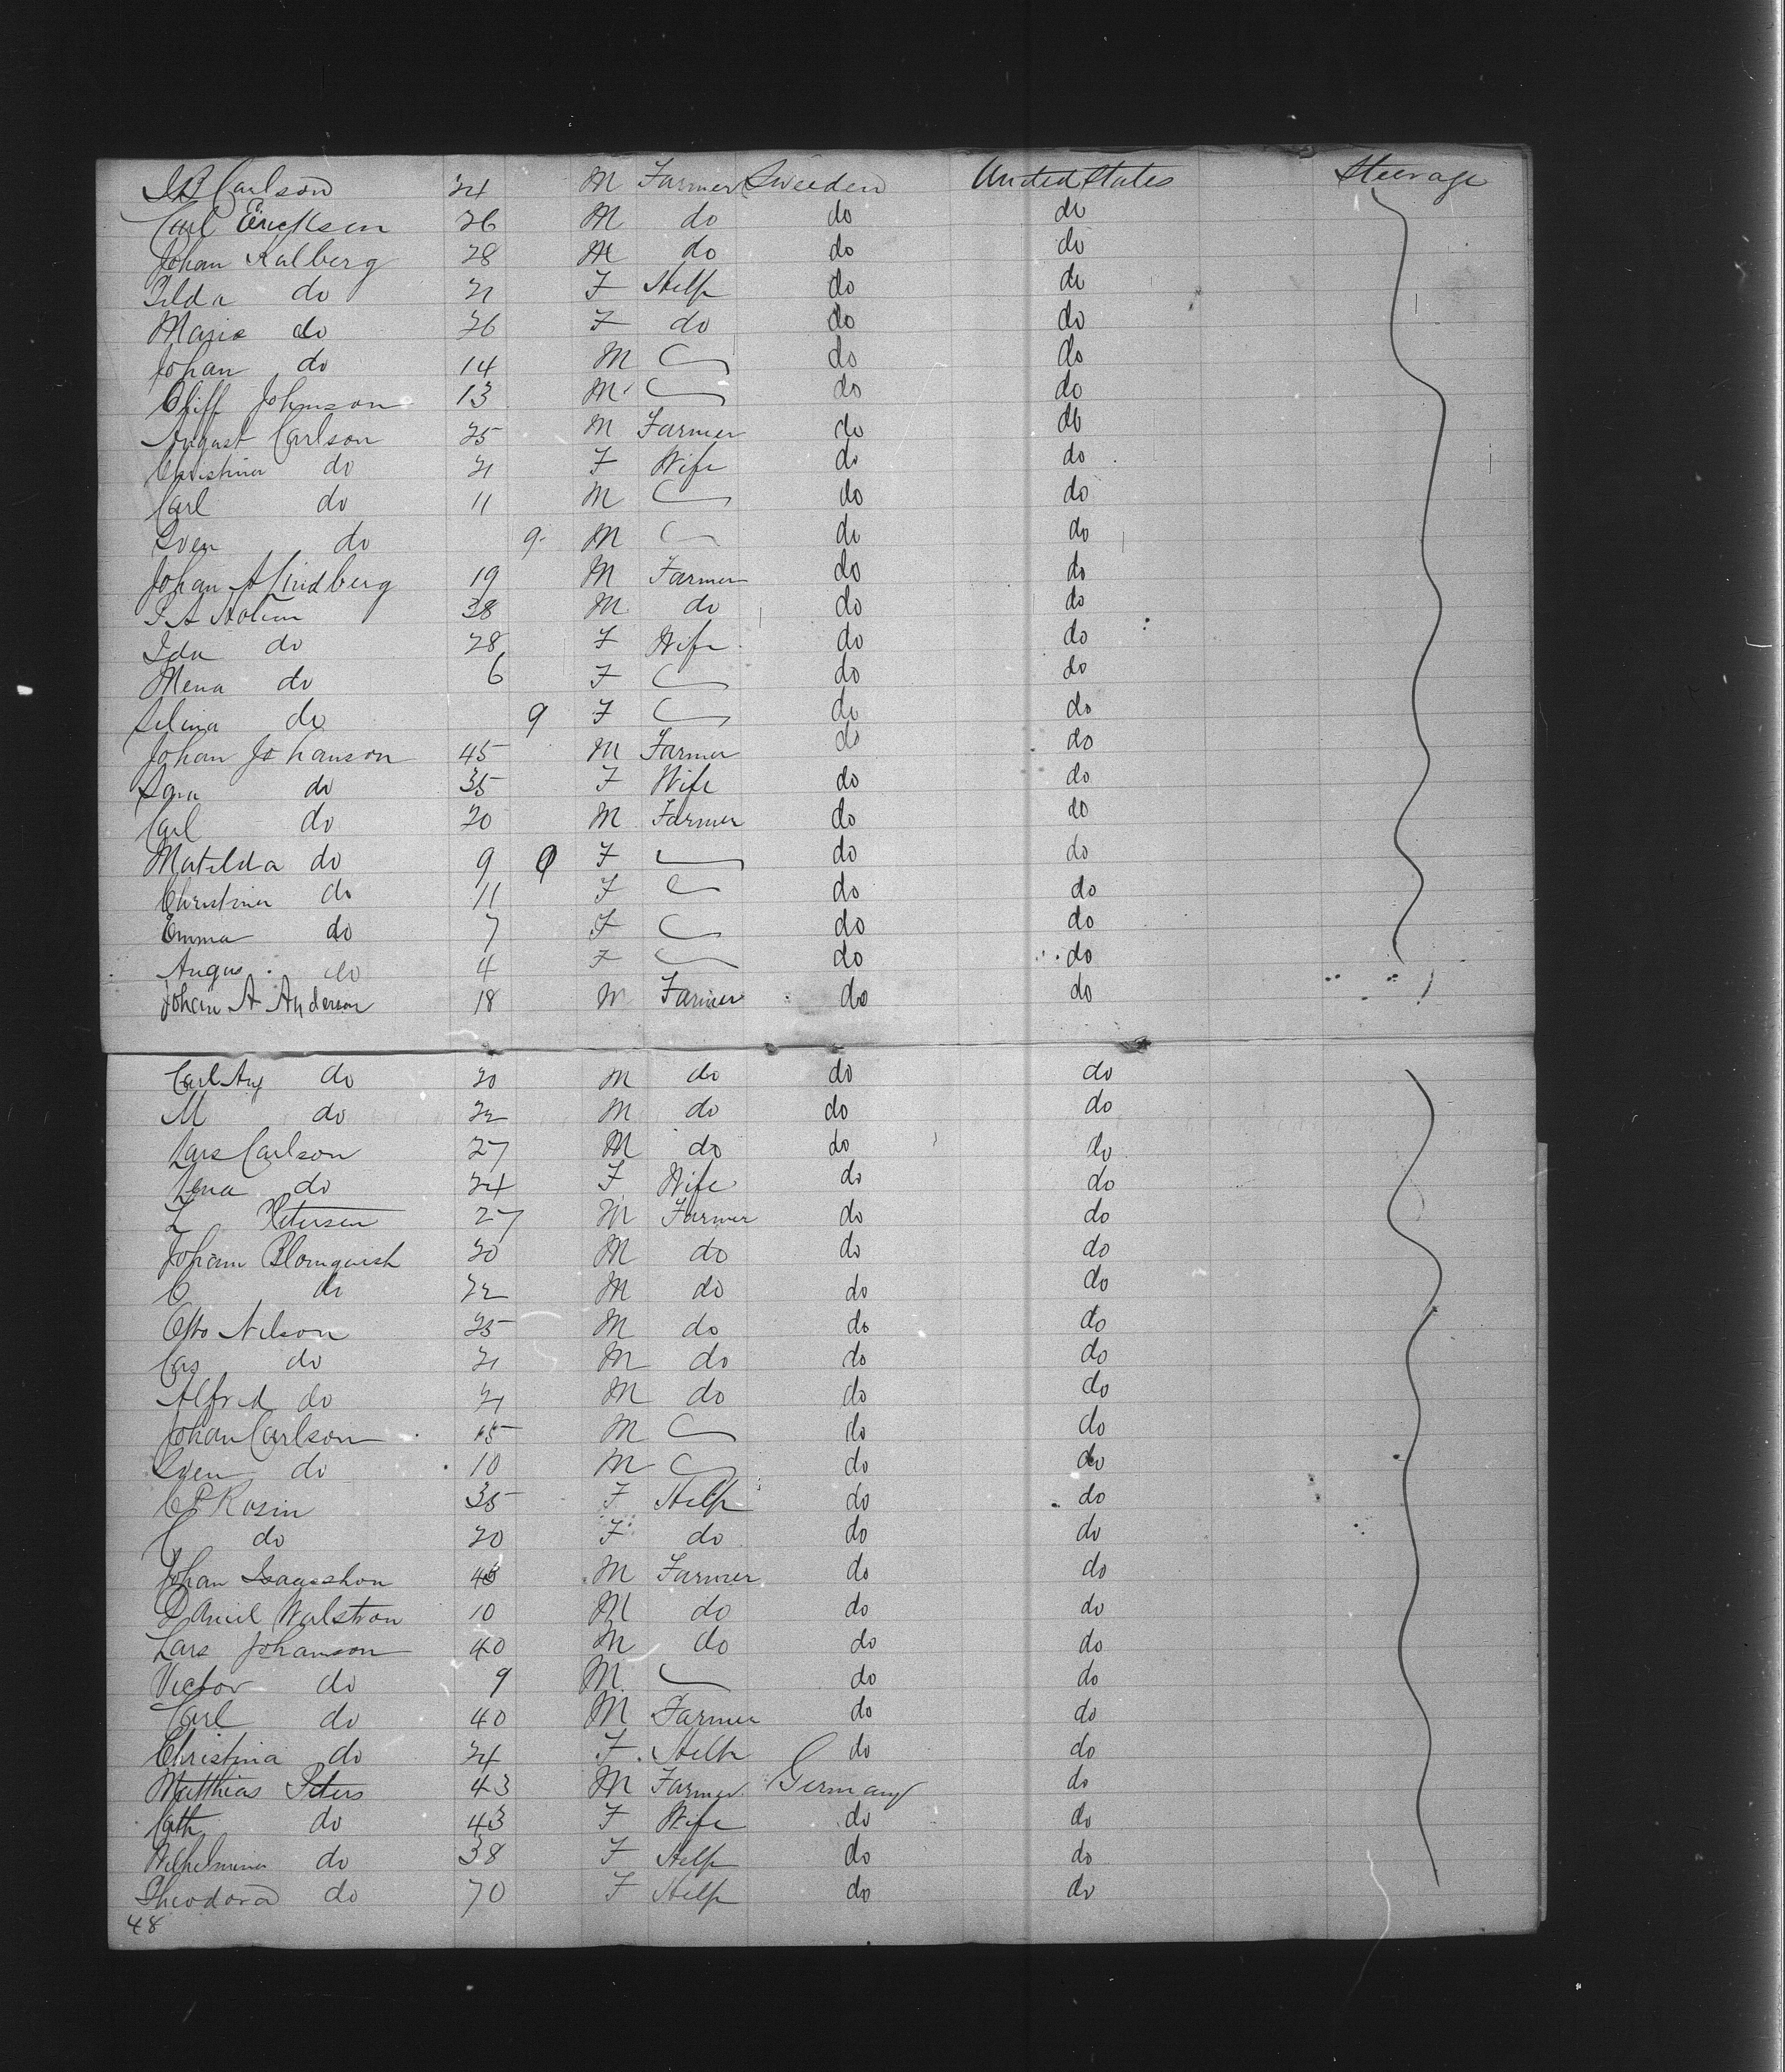 J B Carlson 24 M Farmer Sweeden United States Steerage
Carl Erickson 26 M do do do
Johan Kalberg 28 M do do do
Tilda do 21 F Help do do
Maria do 26 F do do do
Johan do 14 M do do
Oliff Johnson 13 M do do
August Carlson 25 M Farmer do do
Christina do 21 F Wife do do
Carl do 11 M do do
Sven do 9 M do do
Johan A Lindberg 19 M Farmer do do
38 M do do do
Ida do 28 F Wife do do
Mena do 6 F do do
Selina do 9 F do do
Johan Johanson 45 M Farmer do do
Sara do 35 F Wife do do
Carl do 20 M Farmer do do
Matilda do 9 F do do
Christina do 11 F do do
Emma do 7 F do do
Augus do 4 F do do
Johan A Anderson 18 M Farmer do do
Carl Aug do 20 M do do do
M do 22 M do do do
Lars Carlson 27 M do do do
Lena do 24 F Wife do do
L Petersen 27 M Farmer do do
Johan Blomquish 20 M do do do
C do 22 M do do do
Otto Nilson 25 M do do do
Cas do 21 M do do do
Alfred do 21 M do do do
Johan Carlson 15 M do do
Sven do 10 M do do
C P Rosin 35 F Help do do
C do 20 F do do do
Johan Isaacshon M Farmer do do
Daniel Walstron 10 M do do do
Lars Johanson 40 M do do do
Victor do 9 M do do
Carl do 40 M Farmer do do
Christina do 24 F Help do do
Matthias Peters 43 M Farmer Germany do
Cath do 43 F Wife do do
Wilhelmina do 38 F Help do do
Theodora do 70 F Help do do
48